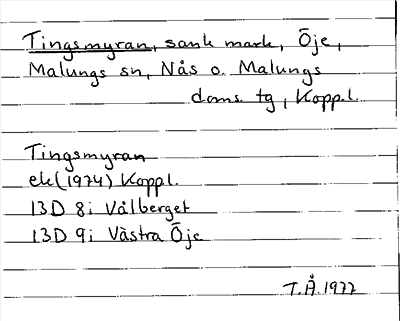 Tingsmyran, sank mark, Öje,
Malungs sn, Nås o. Malungs
doms. tg, Kopp.l.
Tingsmyran
ek(1974) Koppl.
13D 8i Vålberget
13D 9i Västra Öje
T.Å.1977